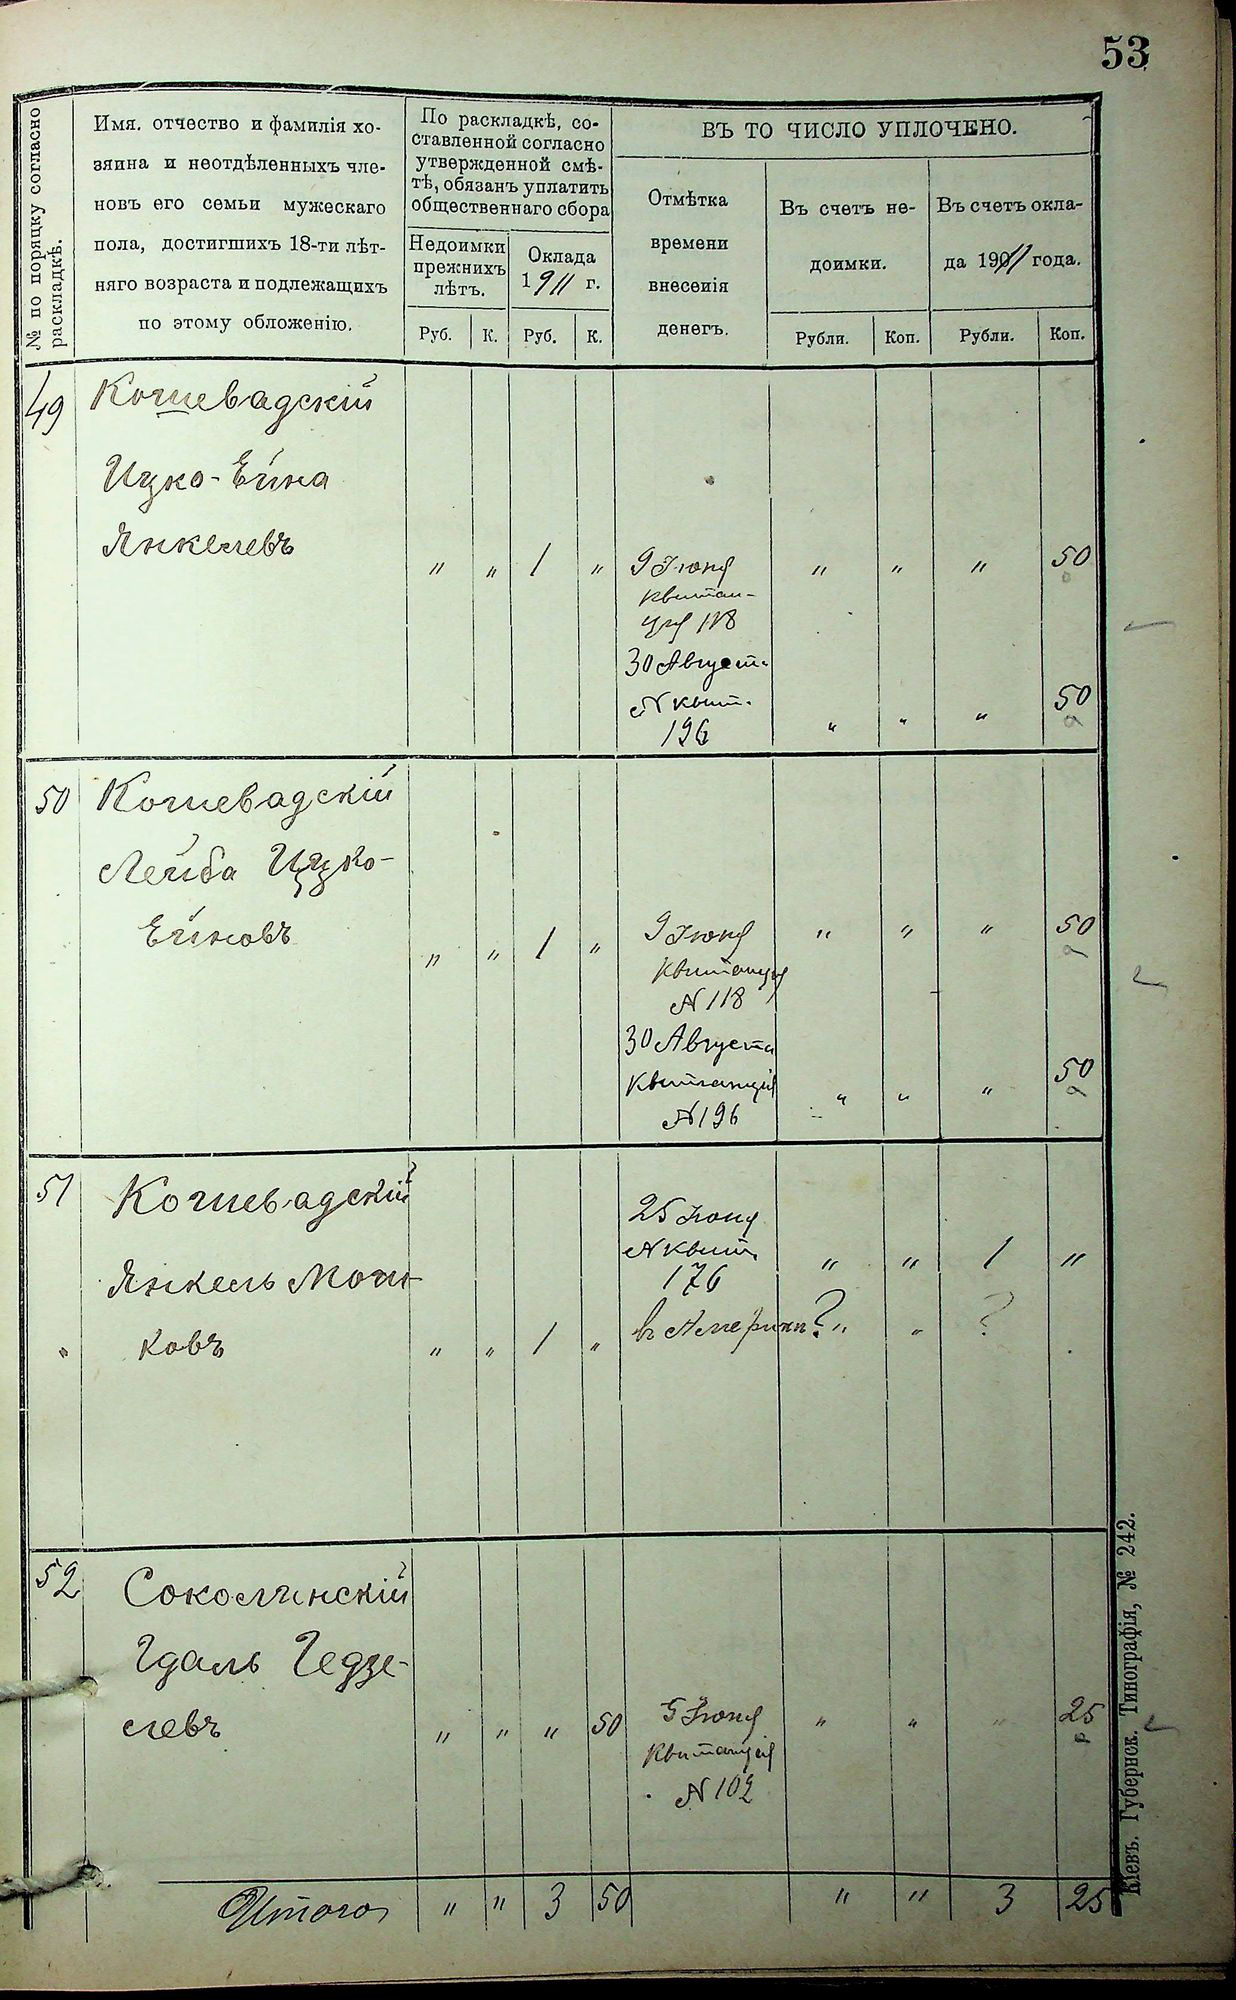 53
№ по порядку согласно
раскладкѣ.
Имя, отчество и фамилія хо-
зяина и неотдѣленныхъ чле-
новъ его семьи мужескаго
пола, достигшихъ 18-ти лѣт-
няго возраста и подлежащихъ
по этому обложенію.
По раскладкѣ, со-
ставленной согласно
утвержденной смѣ-
тѣ, обязанъ уплатить
общественнаго сбора
Недоимки
прежнихъ
лѣтъ.
Оклада
1911 г.
Руб. К. Руб. К.
ВЪ ТО ЧИСЛО УПЛОЧЕНО.
Отмѣтка
времени
внесенія
денегъ.
Въ счетъ не-
доимки.
Рубли. Коп.
Въ счетъ окла-
да 1911 года.
Рубли. Коп.
49 Кошевадскій
Ицко-Ейна
Янкелевъ
" " 1 " 9 Іюня " " " 50
квитан-
ція 118
30 Август.
N квит.
196 " " " 50
50 Кошевадскій
Лейба Ицко-
Ейновъ
" " 1 " 9 Іюня " " " 50
Квитанція
N 118
30 Августа
Квитанція " " " 50
N 196
51 Кошевадскій
Янкель Мош-
ковъ
25 Іюня
N квит. " " 1 "
176
" " 1 " в Америкѣ? " " ?
52 Соколинскій
Гдаль Гедзе-
левъ
" " " 50 5 Іюня " " " 25
Квитанція
N 102
Итого " " 3 50 " " 3 25
Кіевъ. Губернск. Типографія, № 242.